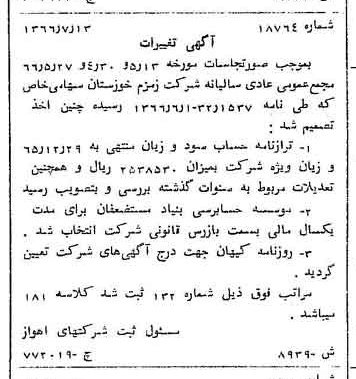 شماره ۱۸۷۶۴ ۱۳۶۶/۷/۱۳
آگهی تغییرات
بموجب صورتجلسات مورخه ۵ر۱۳و ۴ر۳۰و ۶۶ر۵ر۲۷
مجمع عمومی عادی سالیانه شرکت زمزم خوزستان سهامی خاص
که طی نامه ۳۲ر۱۵۳۷-۱۳۶۶ر۶ر۱ رسیده چنین اخذ
تصمیم شد :
۱- ترازنامه حساب سود و زیان منتهی به ۶۵ر۱۲ر۲۹
و زیان ویژه شرکت بمیزان ۲۵۳۸۵۳۰ ریال و همچنین
تعدیلات مربوط به سنوات گذشته بررسی و بتصویب رسید
۲- موسسه حسابرسی بنیاد مستضعفان برای مدت
یکسال مالی بسمت بازرس قانونی شرکت انتخاب شد .
۳- روزنامه کیهان جهت درج آگهی‌های شرکت تعیین
گردید .
مراتب فوق ذیل شماره ۱۳۲ ثبت شد کلاسه ۱۸۱
میباشد .
مسئول ثبت شرکتهای اهواز
ش -۸۹۳۹ ج -۷۷۲۰۱۹